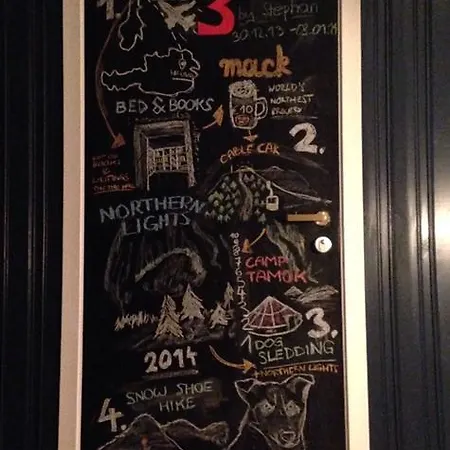 1.
3
by Stephan
30.12.13 - 03.01.14
mack
WORLD'S
NORTHEST
BREWERY
10
BED & BOOKS
2.
CABLE CAR
NORTHERN
LIGHTS
8
7
6
5
4
3
2
1
CAMP
TAMOK
3.
DOG
SLEDDING
+ NORTHERN LIGHTS
2014
4.
SNOW SHOE
HIKE